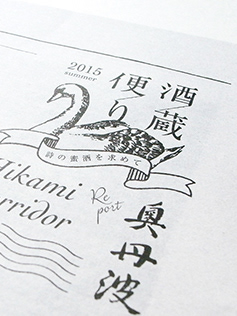 2015
summer
酒蔵
便り
時の蜜酒を求めて
Hikami
Corridor
Re
port
奥丹波